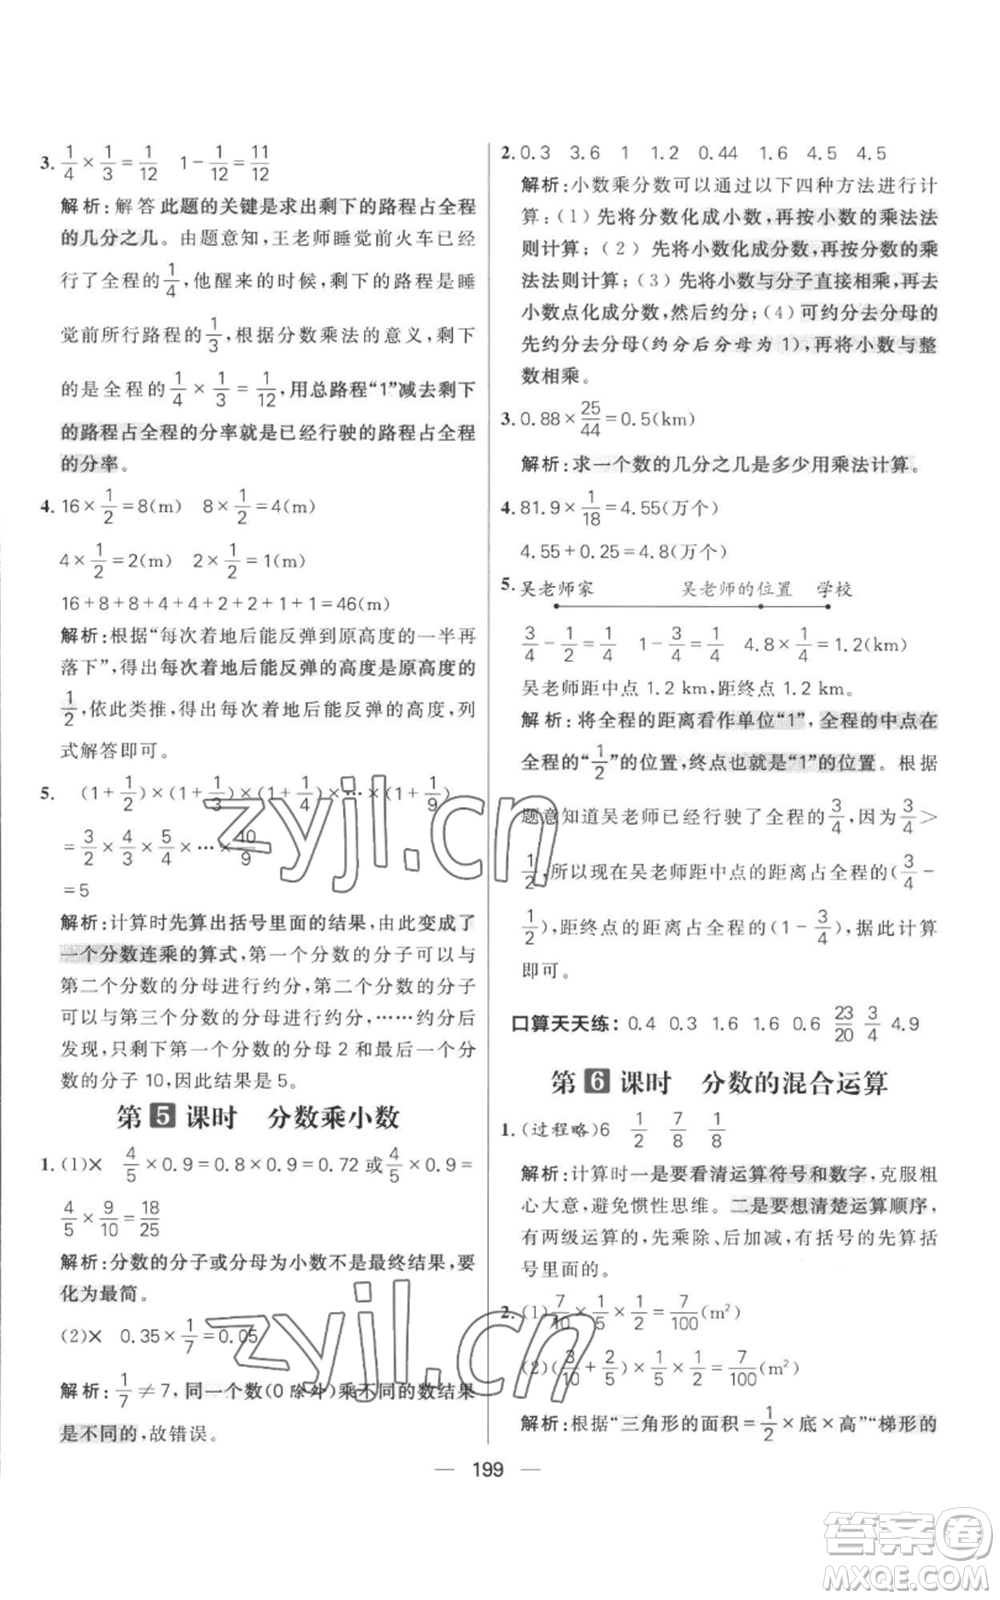 3. 1/4 × 1/3 = 1/12　1 − 1/12 = 11/12
解析:解答此题的关键是求出剩下的路程占全程
的几分之几。由题意知,王老师睡觉前火车已经
行了全程的1/4,他醒来的时候,剩下的路程是睡
觉前所行路程的1/3,根据分数乘法的意义,剩下
的是全程的1/4 × 1/3 = 1/12,用总路程“1”减去剩下
的路程占全程的分率就是已经行驶的路程占全程
的分率。
4. 16 × 1/2 = 8(m)　8 × 1/2 = 4(m)
4 × 1/2 = 2(m)　2 × 1/2 = 1(m)
16+8+8+4+4+2+2+1+1=46(m)
解析:根据“每次着地后能反弹到原高度的一半再
落下”,得出每次着地后能反弹的高度是原高度的
1/2,依此类推,得出每次着地后能反弹的高度,列
式解答即可。
5. (1+1/2)×(1+1/3)×(1+1/4)×…×(1+1/9)
= 3/2 × 4/3 × 5/4 × … × 10/9
=5
解析:计算时先算出括号里面的结果,由此变成了
一个分数连乘的算式,第一个分数的分子可以与
第二个分数的分母进行约分,第二个分数的分子
可以与第三个分数的分母进行约分,……约分后
发现,只剩下第一个分数的分母 2 和最后一个分
数的分子 10,因此结果是 5。
第 5 课时　分数乘小数
1. (1)× 4/5 ×0.9=0.8×0.9=0.72 或 4/5 ×0.9=
4/5 × 9/10 = 18/25
解析:分数的分子或分母为小数不是最终结果,要
化为最简。
(2)× 0.35 × 1/7 = 0.05
解析:1/7 ≠ 7,同一个数(0 除外)乘不同的数结果
是不同的,故错误。
2. 0.3 3.6 1 1.2 0.44 1.6 4.5 4.5
解析:小数乘分数可以通过以下四种方法进行计
算:(1)先将分数化成小数,再按小数的乘法法
则计算;(2)先将小数化成分数,再按分数的乘
法法则计算;(3)先将小数与分子直接相乘,再去
小数点化成分数,然后约分;(4)可约分去分母的
先约分去分母(约分后分母为 1),再将小数与整
数相乘。
3. 0.88 × 25/44 = 0.5(km)
解析:求一个数的几分之几是多少用乘法计算。
4. 81.9 × 1/18 = 4.55(万个)
4.55+0.25=4.8(万个)
5. 吴老师家　吴老师的位置　学校
3/4 − 1/2 = 1/4　1 − 3/4 = 1/4　4.8 × 1/4 = 1.2(km)
吴老师距中点 1.2 km,距终点 1.2 km。
解析:将全程的距离看作单位“1”,全程的中点在
全程的“1/2”的位置,终点也就是“1”的位置。根据
题意知道吴老师已经行驶了全程的3/4,因为3/4 >
1/2,所以现在吴老师距中点的距离占全程的(3/4 −
1/2),距终点的距离占全程的(1 − 3/4),据此计算
即可。
口算天天练:0.4 0.3 1.6 1.6 0.6 23/20 3/4 4.9
第 6 课时　分数的混合运算
1. (过程略)6 1/2 7/8 1/8
解析:计算时一是要看清运算符号和数字,克服粗
心大意,避免惯性思维。二是要想清楚运算顺序,
有两级运算的,先乘除、后加减,有括号的先算括
号里面的。
2. (1) 7/10 × 1/5 × 1/2 = 7/100 (m²)
(2)(3/10 + 2/5) × 1/5 × 1/2 = 7/100 (m²)
解析:根据“三角形的面积=1/2×底×高”“梯形的
199
zyjl.cn
zyjl.cn
答案圈
MXQE.COM